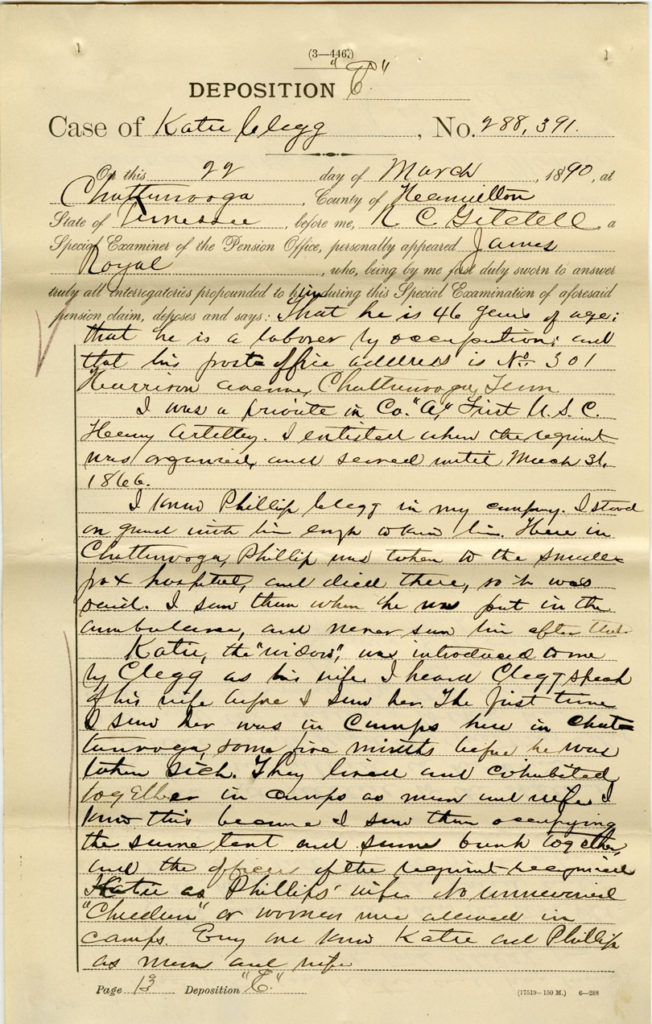 (3—446.)
DEPOSITION "C"
Case of Katie Clegg, No. 288,391.
On this 22 day of March, 1890, at
Chattanooga, County of Hamilton
State of Tennessee, before me, a
Special Examiner of the Pension Office, personally appeared James
Royal, who, being by me first duly sworn to answer
truly all interrogatories propounded to him during this Special Examination of aforesaid
pension claim, deposes and says: That he is 46 years of age;
that he is a laborer by occupation; and
that his post office address is No. 301
Harrison avenue, Chattanooga, Tenn
I was a private in Co. "A," First U.S.C.
Heavy Artillery. I enlisted when the regiment
was organized, and served until March 31,
1866.
I knew Phillip Clegg in my company. I stood
on guard with him enough to know him. Here in
Chattanooga, Phillip was taken to the small-
pox hospital, and died there, so it was
said. I saw them when he was put in the
ambulance, and never saw him after that.
Katie, the "widow", was introduced to me
by Clegg as his wife. I heard Clegg speak
of his wife before I saw her. The first time
I saw her was in Camps here in Chat-
tanooga, some five months before he was
taken sick. They lived and cohabited
together in camps as man and wife. I
know this because I saw them occupying
the same tent and same bunk together,
and the officers of the regiment recognized
Katie as Phillips' wife. No unmarried
or women were allowed in
camps. Every one knew Katie and Phillip
as man and wife
Page 13 Deposition "C"
(17519—150 M.) 6—288